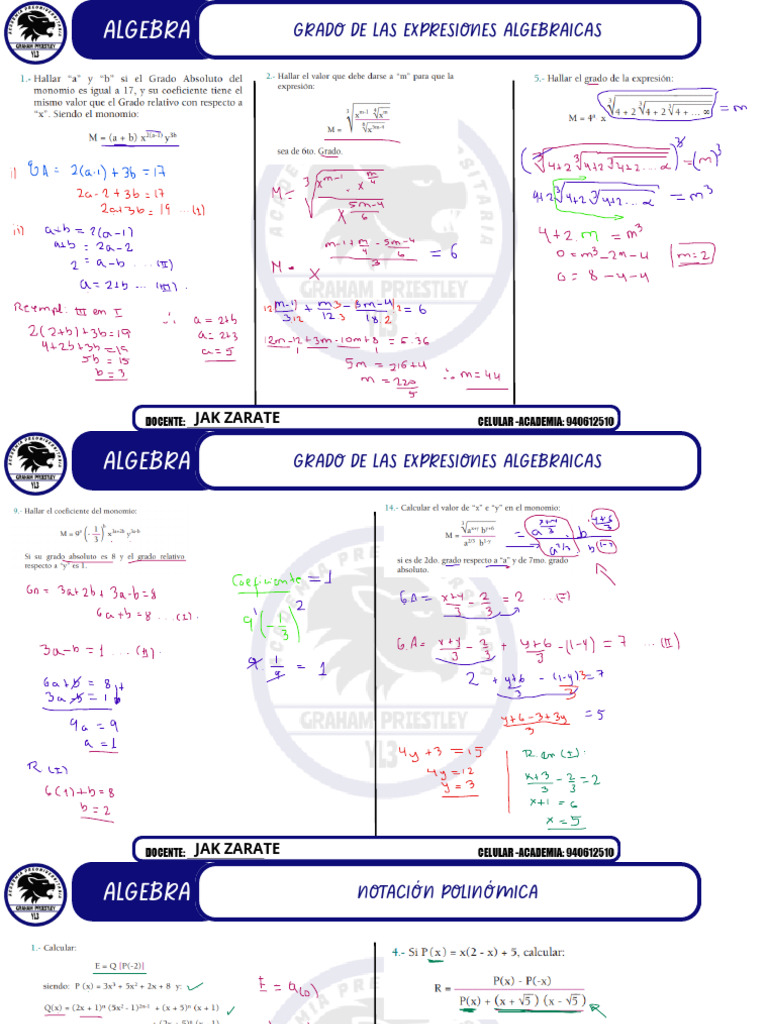 ALGEBRA
GRADO DE LAS EXPRESIONES ALGEBRAICAS
GRAHAM PRIESTLEY
YL3
1.- Hallar "a" y "b" si el Grado Absoluto del
monomio es igual a 17, y su coeficiente tiene el
mismo valor que el Grado relativo con respecto a
"x". Siendo el monomio:
M = (a + b) x^2(a-1) y^3b
i) GA = 2(a-1) + 3b = 17
2a-2+3b = 17
2a+3b = 19 ... (I)
ii) a+b = 2(a-1)
a+b = 2a-2
2 = a-b ... (II)
a = 2+b ... (III)
Reempl: III en I
2(2+b)+3b=19
4+2b+3b=19
5b = 15
b = 3
∴ a = 2+b
a = 2+3
a = 5
2.- Hallar el valor que debe darse a "m" para que la
expresión:
M = ∛(x^m-1 ∜x^m / ⁶√x^5m-4)
sea de 6to. Grado.
M = ∛(x^m-1 · x^m/4 / x^5m-4/6)
M = x^(m-1+m/4-5m-4/6)/3 = 6
12 m-1)/3 12 + m 3/12 3 - 5m-4/18 2 = 6
12m-12+3m-10m+8 = 6.36
5m = 216+4
m = 220/5 ∴ m = 44
5.- Hallar el grado de la expresión:
M = 4^x x^∛(4+2∛(4+2∛(4+...∞))) = m
(∛(4+2∛(4+2∛(4+2...∞))))³ = (m)³
4+2∛(4+2∛(4+2...∞)) = m³
4+2.m = m³
0 = m³-2m-4 m=2
0 = 8-4-4
GRAHAM PRIESTLEY
YL3
DOCENTE: JAK ZARATE
CELULAR -ACADEMIA: 940612510
ALGEBRA
GRADO DE LAS EXPRESIONES ALGEBRAICAS
GRAHAM PRIESTLEY
YL3
9.- Hallar el coeficiente del monomio:
M = 9^a (-1/3)^b x^3a+2b y^3a-b
Si su grado absoluto es 8 y el grado relativo
respecto a "y" es 1.
GA = 3a+2b+3a-b=8
6a+b = 8 ... (I).
3a-b = 1 ... (II).
6a+b = 8
3a-b = 1
9a = 9
a = 1
R (I)
6(1)+b=8
b = 2
Coeficiente = 1
9^1 (-1/3)^2
9 · 1/9 = 1
14.- Calcular el valor de "x" e "y" en el monomio:
M = ∛(a^x+y b^y+6) / a^2/3 b^1-y = a^x+y/3 · b^y+6/3 / a^2/3 b^(1-y)
si es de 2do. grado respecto a "a" y de 7mo. grado
absoluto.
G.A = x+y/3 - 2/3 = 2 ... (I)
G.A = x+y/3 - 2/3 + y+6/3 - (1-y) = 7 ... (II)
2 + y+6/3 - (1-y)3/3 = 7
y+6-3+3y/3 = 5
4y+3 = 15
4y = 12
y = 3
R en (I):
x+3/3 - 2/3 = 2
x+1 = 6
x = 5
GRAHAM PRIESTLEY
YL3
DOCENTE: JAK ZARATE
CELULAR -ACADEMIA: 940612510
ALGEBRA
NOTACIÓN POLINÓMICA
GRAHAM PRIESTLEY
YL3
1.- Calcular:
E = Q [P(-2)]
siendo: P (x) = 3x³ + 5x² + 2x + 8 y:
Q(x) = (2x + 1)^n (5x² - 1)^2n-1 + (x + 5)^n (x + 1)
E = Q(0)
4.- Si P (x) = x(2 - x) + 5, calcular:
R = P(x) - P(-x) / P(x) + (x + √5) (x - √5)